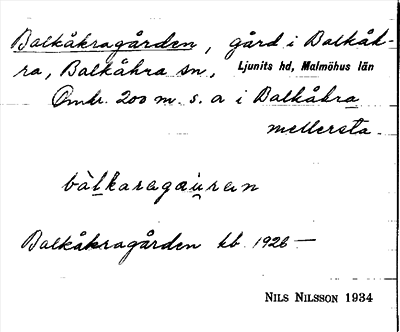 Balkåkragården, gård i Balkåk-
ra, Balkåkra sn, Ljunits hd, Malmöhus län
Omkr. 200 m. s. a i Balkåkra
mellersta.
bàlkaragæurεn
Balkåkragården kb 1926 –
NILS NILSSON 1934